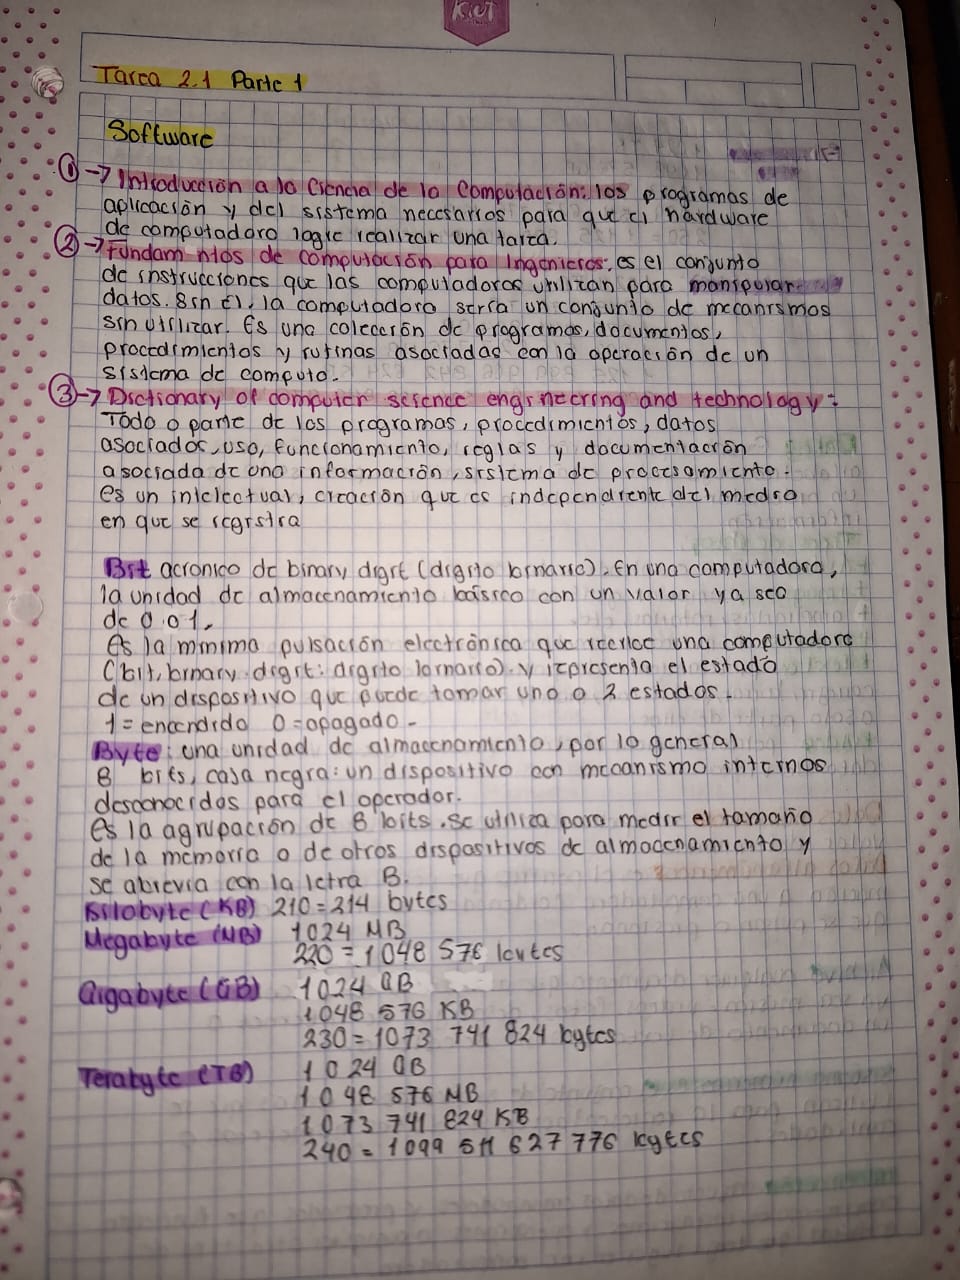 KIUT
Tarea 2.1 Parte 1
Software
① → Introducción a la Ciencia de la Computación: los programas de
aplicación y del sistema necesarios para que el hardware
de computadora logre realizar una tarea.
② → Fundam ntos de computación para Ingenieros: es el conjunto
de instrucciones que las computadoras utilizan para manipular
datos. Sin él, la computadora sería un conjunto de mecanismos
sin utilizar. Es una colección de programas, documentos,
procedimientos y rutinas asociadas con la operación de un
sistema de computo.
③ → Dictionary of computer science engineering and technology:
Todo o parte de los programas, procedimientos, datos
asociados, uso, funcionamiento, reglas y documentación
asociada de una información, sistema de procesamiento.
es un intelectual, creación que es independiente del medio
en que se registra
Bit acronico de binary digit (digito binario). En una computadora,
la unidad de almacenamiento básico con un valor ya sea
de 0 o 1.
Es la mínima pulsación electrónica que recrice una computadora
(bit, binary digit: digito binario). y representa el estado
de un dispositivo que puede tomar uno o 2 estados.
1 = encendido 0 = apagado -
Byte: una unidad de almacenamiento, por lo general
8 bits, caja negra: un dispositivo con mecanismo internos
desconocidos para el operador.
es la agrupación de 8 bits. Se utiliza para medir el tamaño
de la memoria o de otros dispositivos de almacenamiento y
se abrevia con la letra B.
Kilobyte (KB) 210 = 214 bytes
Megabyte (MB) 1024 MB
220 = 1048 576 bytes
Gigabyte (GB) 1024 GB
1048 576 KB
230 = 1073 741 824 bytes
Terabyte (TB) 1024 GB
1048 576 MB
1073 741 824 KB
240 = 1099 511 627 776 bytes